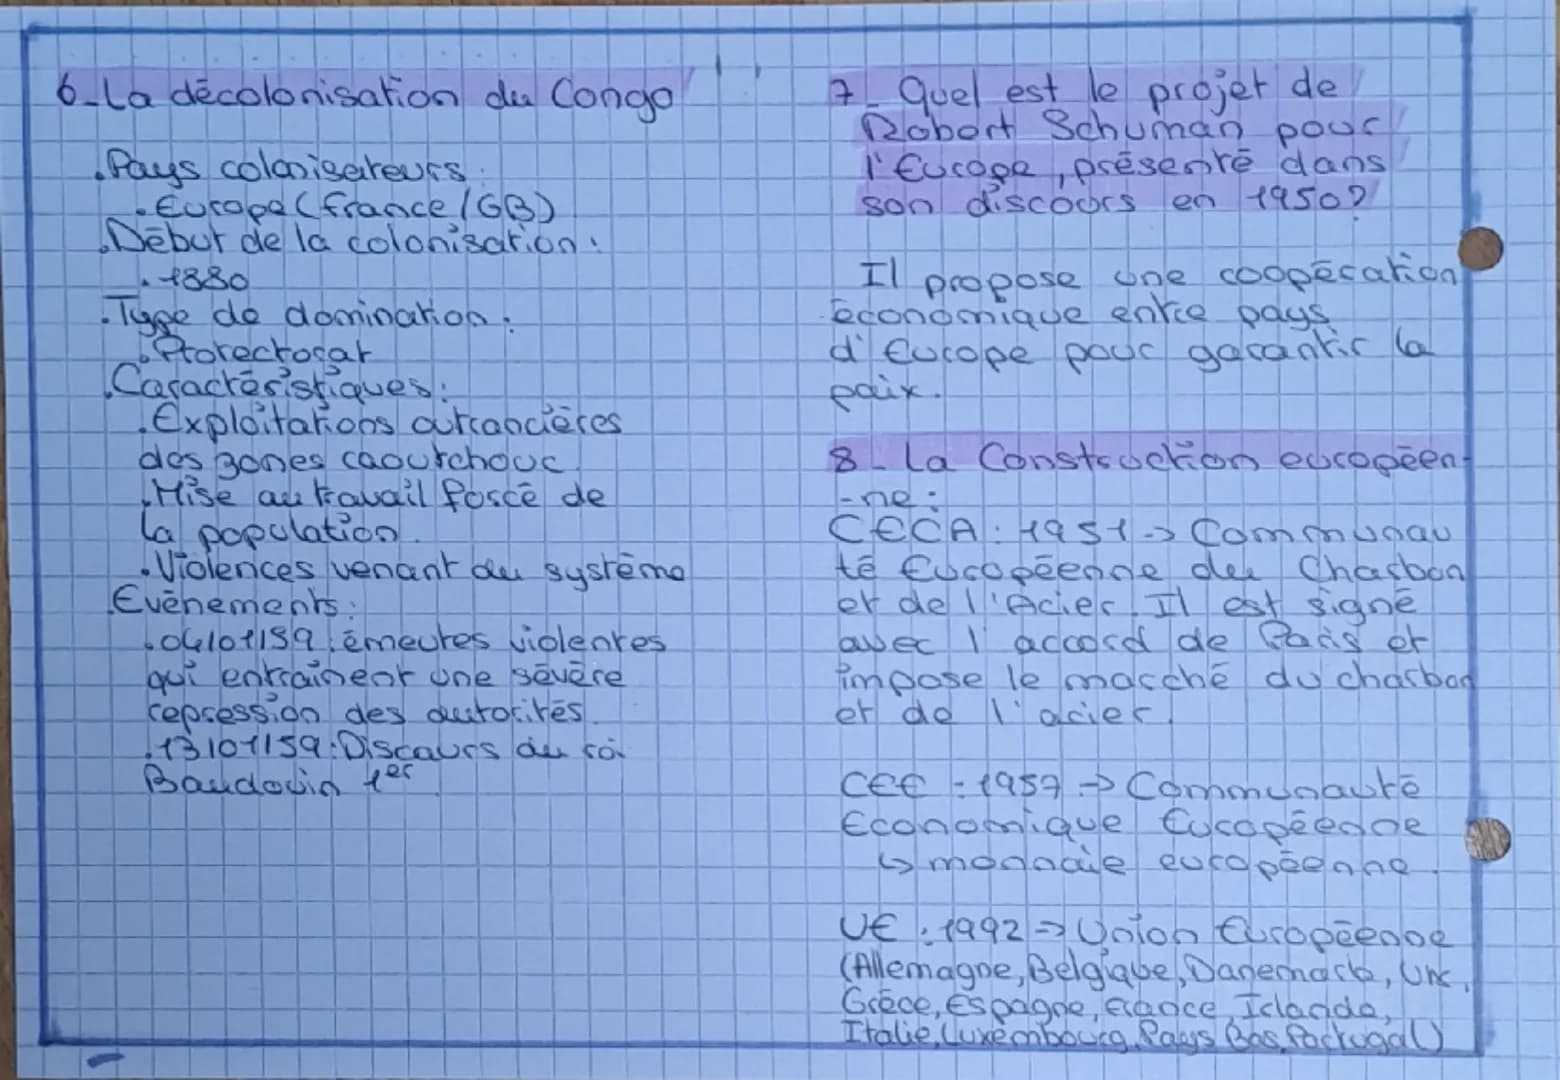 6_La décolonisation du Congo
.Pays colonisateurs:
.Europe (France/GB)
.Début de la colonisation:
.1880
.Type de domination:
.Protectorat
.Caractéristiques:
.Exploitations
des zones caoutchouc
.Mise au travail forcé de
la population.
.Violences venant du système
.Evènements:
.04/01/59: émeutes violentes
qui entraînent une sévère
repression des autorités.
.13/01/59: Discours du roi
Baudouin 1er
7_ Quel est le projet de
Robert Schuman pour
l'Europe, présenté dans
son discours en 1950?
Il propose une coopération
économique entre pays
d'Europe pour garantir la
paix.
8_ La Construction européen-
-ne:
CECA: 1951 -> Communau
té Européenne du Charbon
et de l'Acier. Il est signé
avec l'accord de Paris et
impose le marché du charbon
et de l'acier.
CEE: 1957 -> Communauté
Economique Européenne
↳ monnaie européenne.
UE: 1992 => Union Européenne
(Allemagne, Belgique, Danemark,
Grèce, Espagne, France, Islande,
Italie, Luxembourg, Pays Bas, Portugal)